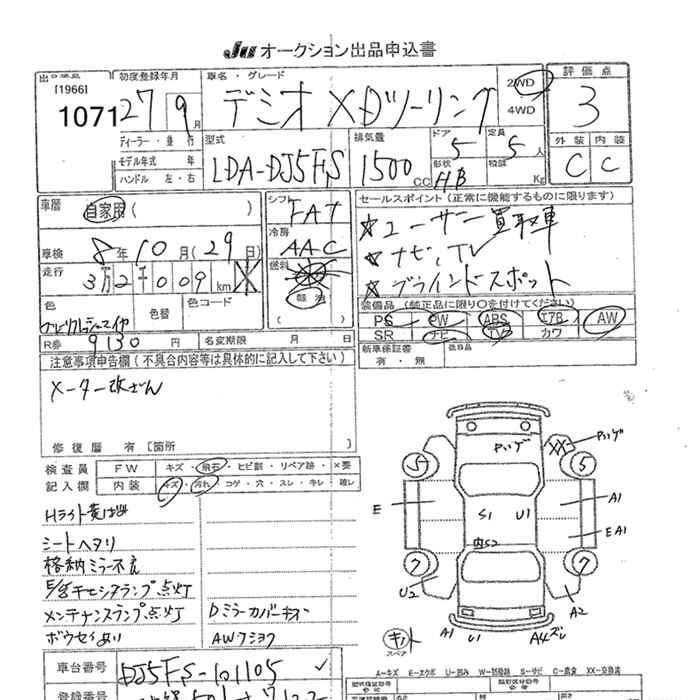 JU オークション出品申込書
[1966]
1071
初度登録年月
27 9月
車名・グレード
デミオ XDツーリング
2WD
4WD
評価点
3
外装 内装
C C
ディーラー・並行
モデル年式 年
ハンドル 左・右
型式
LDA-DJ5FS
排気量
1500 CC
ドア
5
形状
HB
定員
5人
積載
Kg
車歴
自家用( )
シフト
FAT
冷房
AAC
燃料
軽油
( )
セールスポイント(正常に機能するものに限ります)
★ユーザー買取車
★ナビ、TV
★ブラインドスポット
車検
8年10月(29日)
走行
3万2千009km
色
色替
色コード
R券
9130円
名変期限 月 日
装備品(純正品に限り○を付けてください)
PS PW ABS エアB AW
SR ナビ TV カワ
新車保証書
有・無
注意事項申告欄(不具合内容等は具体的に記入して下さい)
メーター改ざん
修復歴 有[箇所 ]
検査員 FW キズ・飛石・ヒビ割・リペア跡・×要
記入欄 内装 キズ・汚れ・コゲ・穴・スレ・キレ・破レ
Hライト黄ばみ
シートヘタリ
格納ミラー不良
メンテナンスランプ点灯
ボウセイあり
Dミラーカバーキズ
AWフショク
Pハゲ
XX
Pハゲ
5
5
E
A1
S1
U1
E A1
内S2
7
7
U2
A2
A1
U1
A4ズレ
キット
スペア
A-キズ E-エクボ U-凹み W-補修跡 S-サビ C-腐食 XX-交換済
車台番号
DJ5FS-101105
登録番号